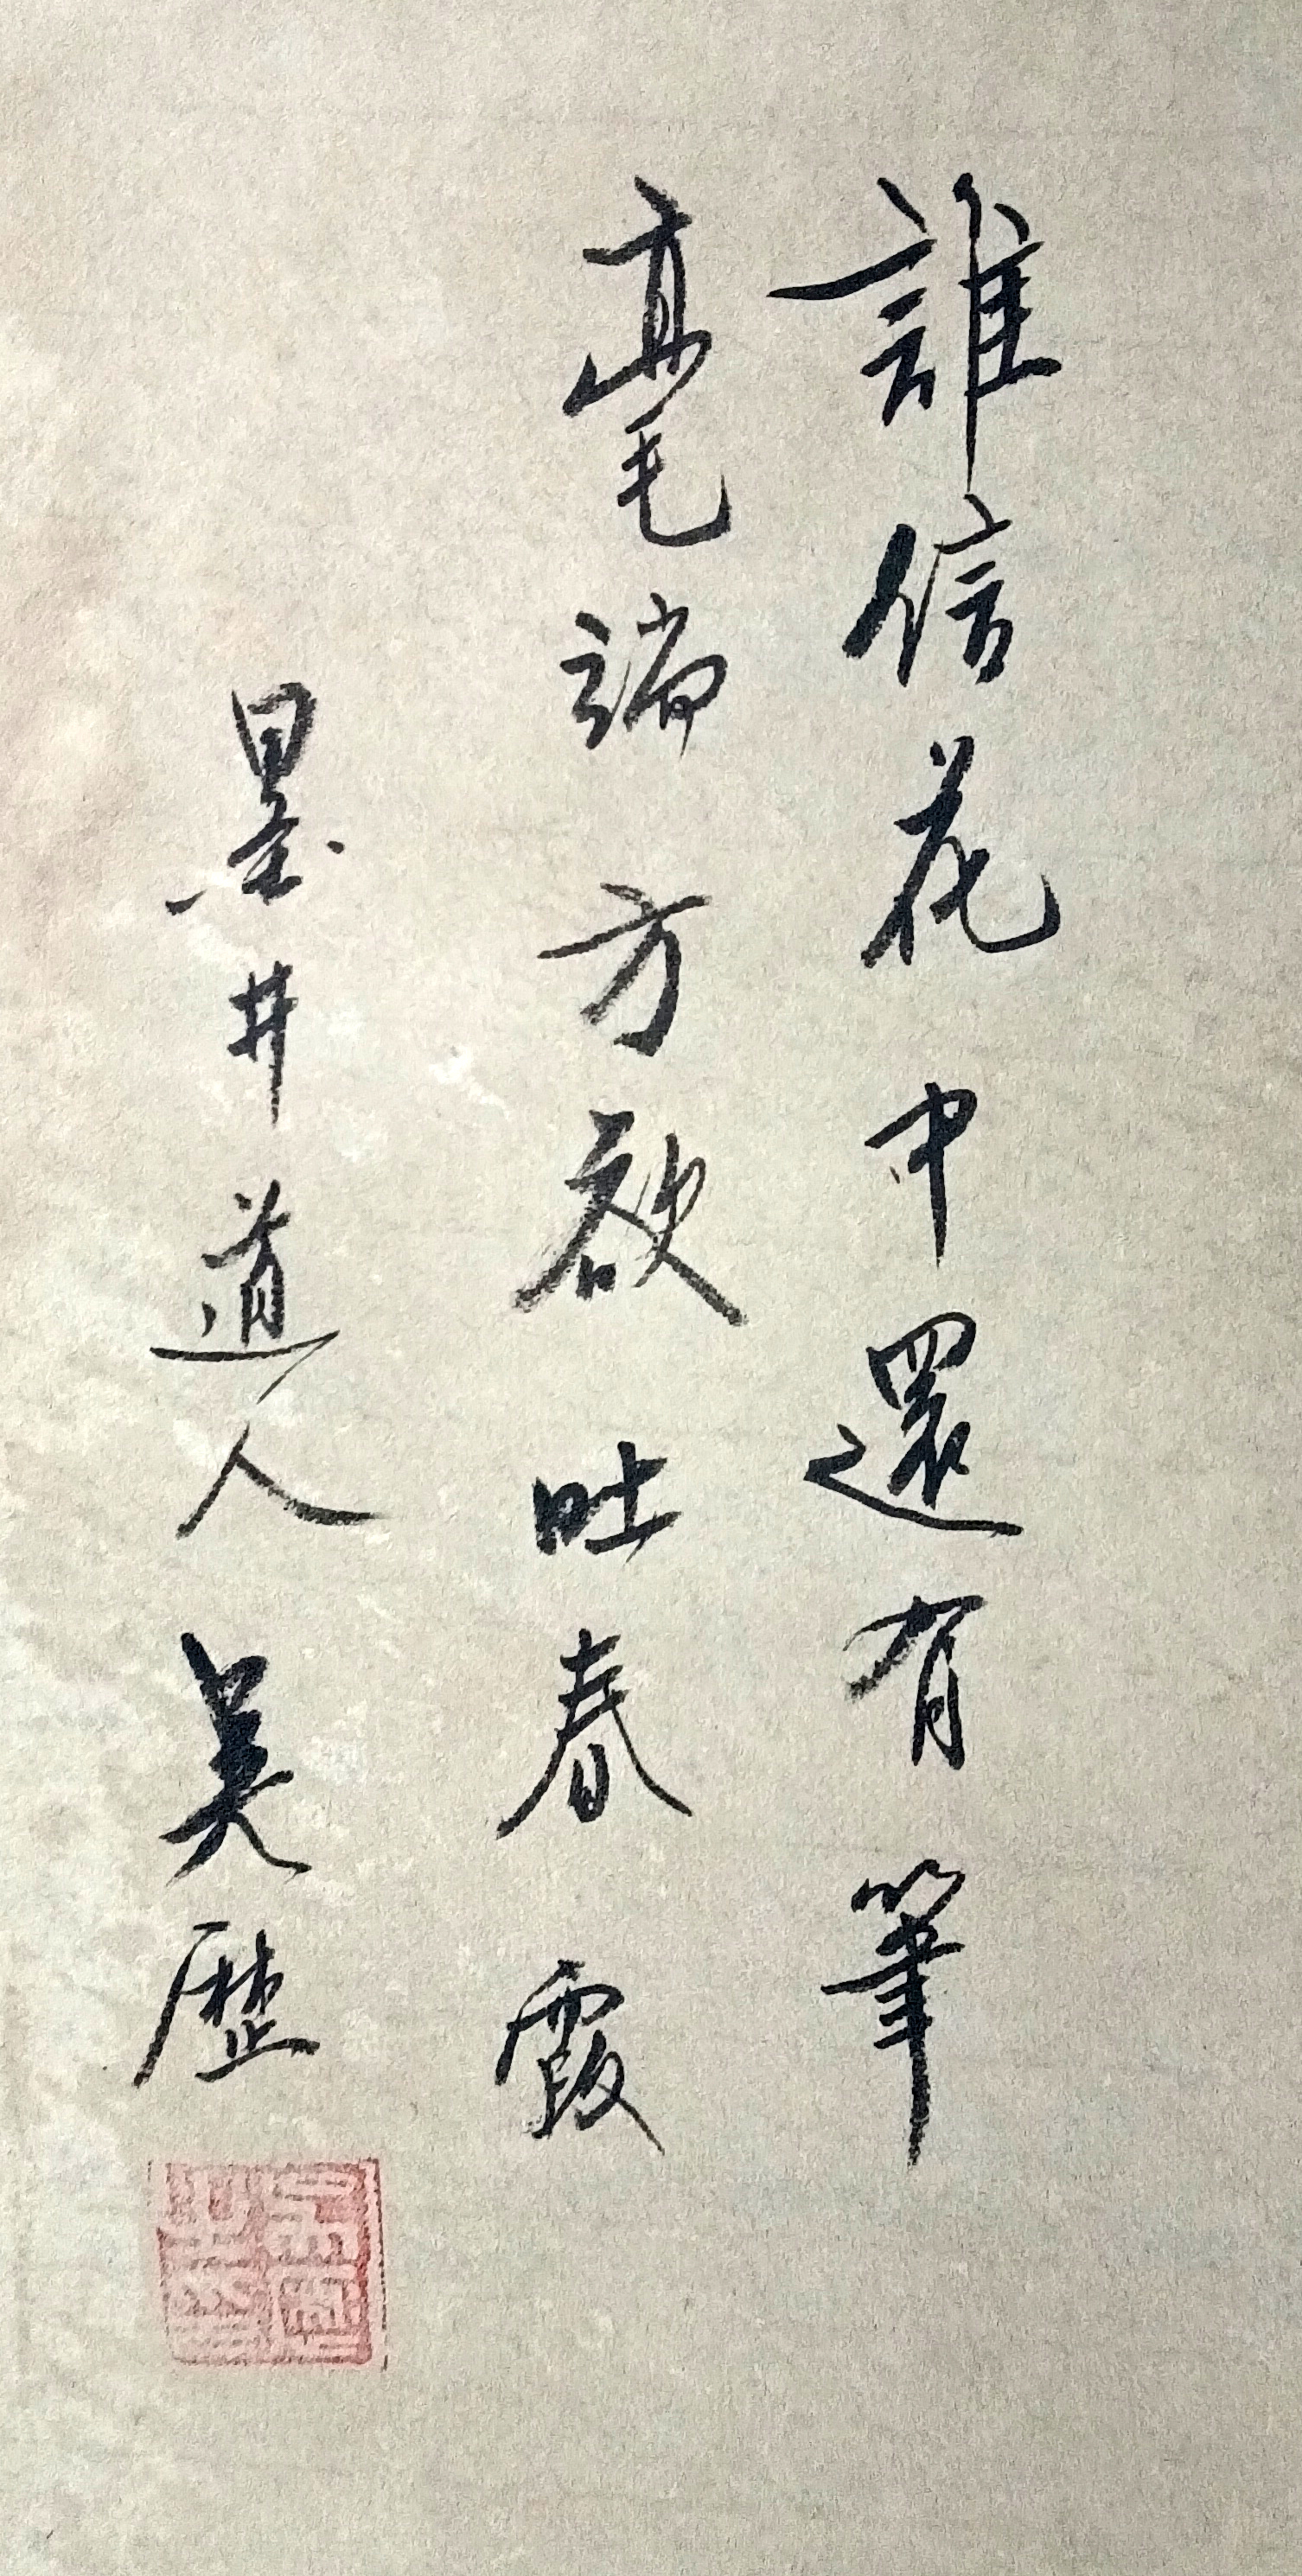 誰信花中還有筆
毫端方欲吐春霞
墨井道人吳歷